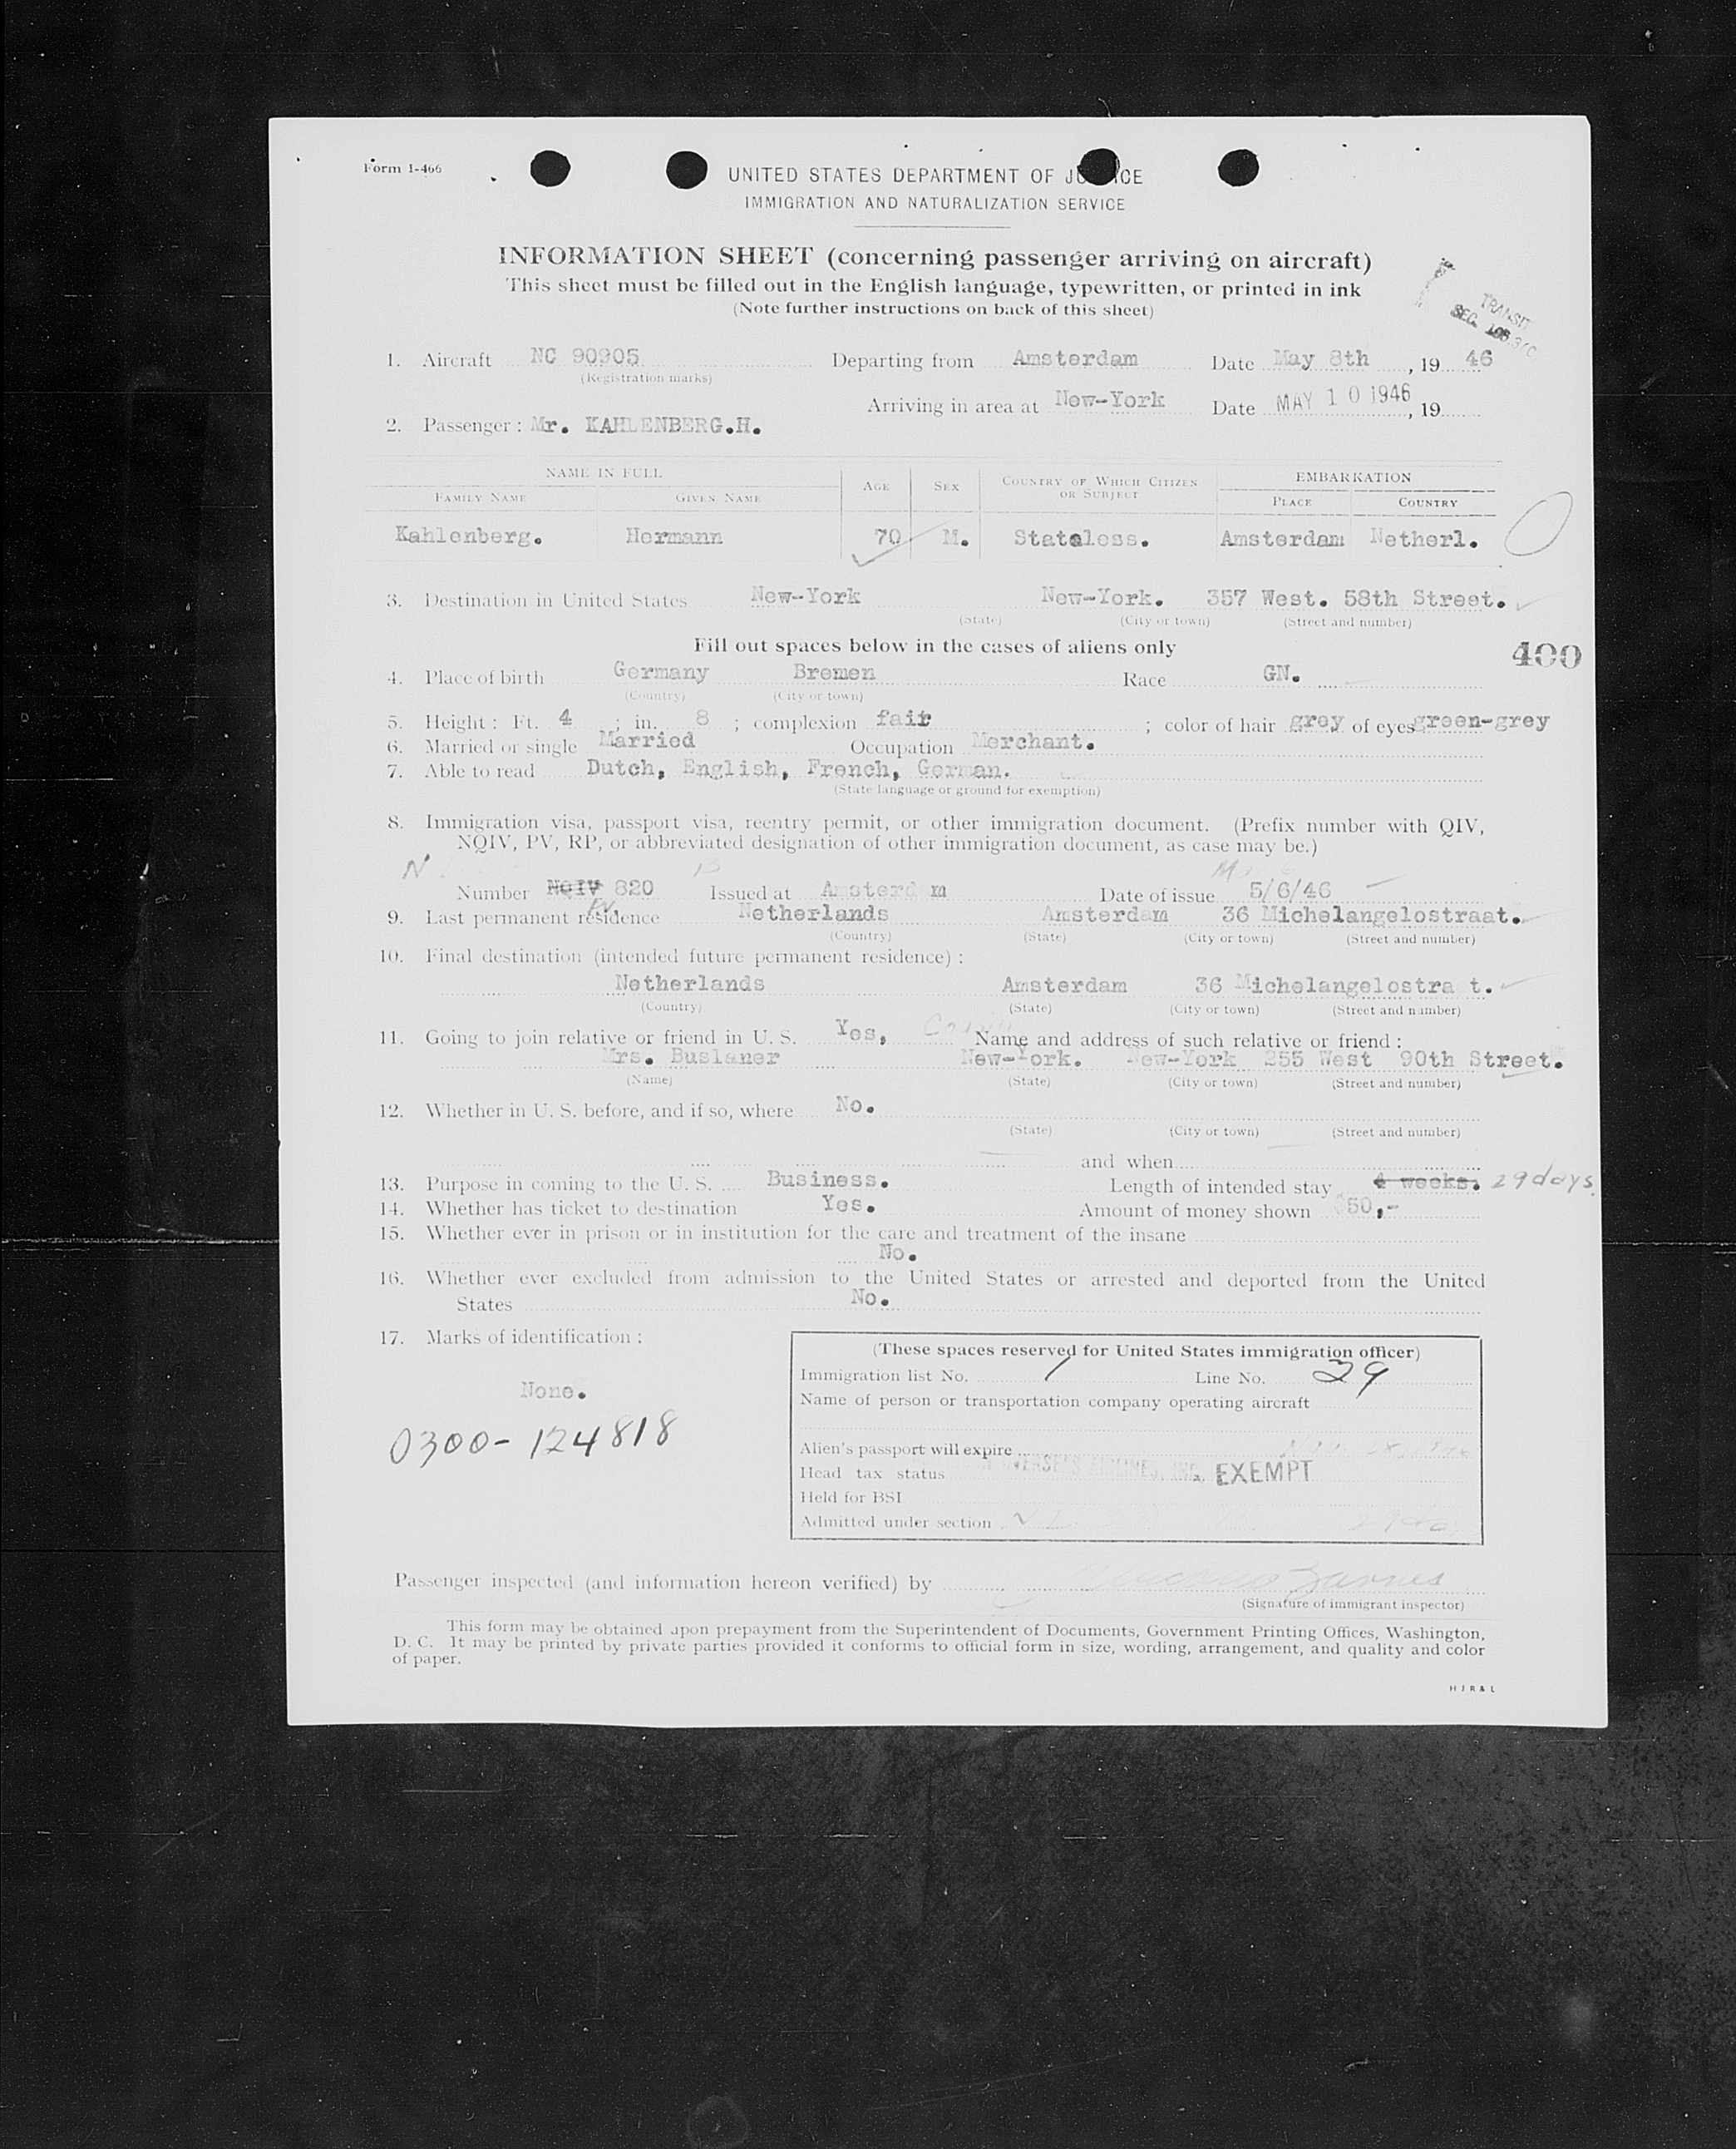 Form I-466
UNITED STATES DEPARTMENT OF JUSTICE
IMMIGRATION AND NATURALIZATION SERVICE
INFORMATION SHEET (concerning passenger arriving on aircraft)
This sheet must be filled out in the English language, typewritten, or printed in ink
(Note further instructions on back of this sheet)
TRANSIT
SEC.
1. Aircraft NC 90905 Departing from Amsterdam Date May 8th, 19 46
(Registration marks)
Arriving in area at New-York Date MAY 10 1946, 19
2. Passenger: Mr. KAHLENBERG.H.
NAME IN FULL AGE SEX COUNTRY OF WHICH CITIZEN OR SUBJECT EMBARKATION
FAMILY NAME GIVEN NAME PLACE COUNTRY
Kahlenberg. Hermann 70 M. Stateless. Amsterdam Netherl.
3. Destination in United States New-York New-York. 357 West. 58th Street.
(State) (City or town) (Street and number)
Fill out spaces below in the cases of aliens only
400
4. Place of birth Germany Bremen Race GN.
(Country) (City or town)
5. Height: Ft. 4; in. 8; complexion fair; color of hair grey of eyes green-grey
6. Married or single Married Occupation Merchant.
7. Able to read Dutch, English, French, German.
(State language or ground for exemption)
8. Immigration visa, passport visa, reentry permit, or other immigration document. (Prefix number with QIV,
NQIV, PV, RP, or abbreviated designation of other immigration document, as case may be.)
Number NQIV PV. 820 Issued at Amsterdam Date of issue 5/6/46
9. Last permanent residence Netherlands Amsterdam 36 Michelangelostraat.
(Country) (State) (City or town) (Street and number)
10. Final destination (intended future permanent residence):
Netherlands Amsterdam 36 Michelangelostra t.
(Country) (State) (City or town) (Street and number)
11. Going to join relative or friend in U. S. Yes, Name and address of such relative or friend:
Mrs. Buslaner New-York. New-York 255 West 90th Street.
(Name) (State) (City or town) (Street and number)
12. Whether in U. S. before, and if so, where No.
(State) (City or town) (Street and number)
and when
13. Purpose in coming to the U. S. Business. Length of intended stay 4 weeks. 29 days.
14. Whether has ticket to destination Yes. Amount of money shown 50,-
15. Whether ever in prison or in institution for the care and treatment of the insane
No.
16. Whether ever excluded from admission to the United States or arrested and deported from the United
States No.
17. Marks of identification:
None.
0300-124818
(These spaces reserved for United States immigration officer)
Immigration list No. 1 Line No. 29
Name of person or transportation company operating aircraft
Alien's passport will expire
Head tax status EXEMPT
Held for BSI
Admitted under section
Passenger inspected (and information hereon verified) by
(Signature of immigrant inspector)
This form may be obtained upon prepayment from the Superintendent of Documents, Government Printing Offices, Washington,
D. C. It may be printed by private parties provided it conforms to official form in size, wording, arrangement, and quality and color
of paper.
H J R & L